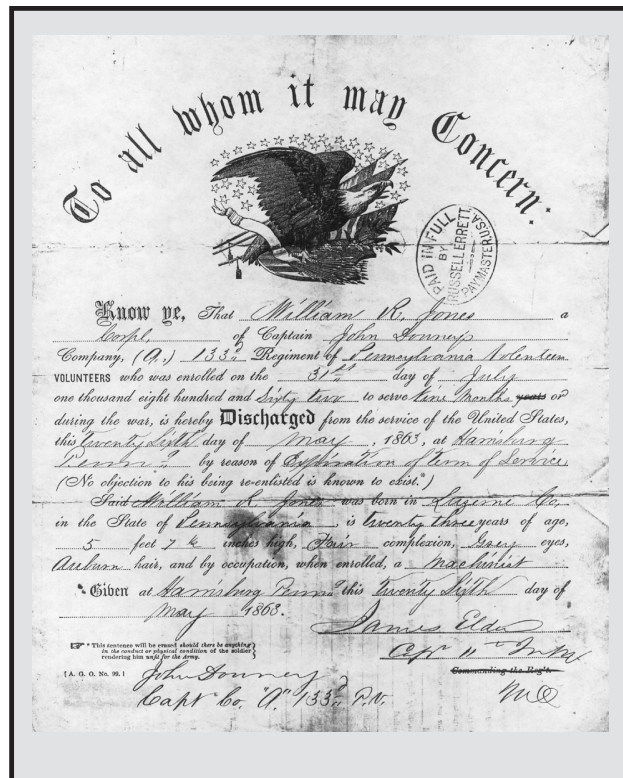 To all whom it may Concern:
PAID IN FULL
BY
RUSSELL ERRETT
PAYMASTER USA
Know ye, That William R. Jones a
Corpl, of Captain John Downeys
Company, (A,) 133d Regiment of Pennsylvania Volenteen
VOLUNTEERS who was enrolled on the 31st day of July
one thousand eight hundred and Sixty two to serve Nine Months years or
during the war, is hereby Discharged from the service of the United States,
this Twenty Sixth day of May, 1863, at Harrisburg
Penna by reason of Expiration of term of Service,
(No objection to his being re-enlisted is known to exist.*)
Said William R. Jones was born in Luzerne Co,
in the State of Pennsylvania, is twenty three years of age,
5 feet 7 inches high, Fair complexion, Grey eyes,
Auburn hair, and by occupation, when enrolled, a Machinist
Given at Harrisburg Penna this Twenty Sixth day of
May 1863.
James Elder
Capt 11th Inf
Commanding the Reg't.
* This sentence will be erased should there be anything
in the conduct or physical condition of the soldier
rendering him unfit for the Army.
[A. G. O. No. 99.]
John Downey
Capt Co. "A" 133d P.V.